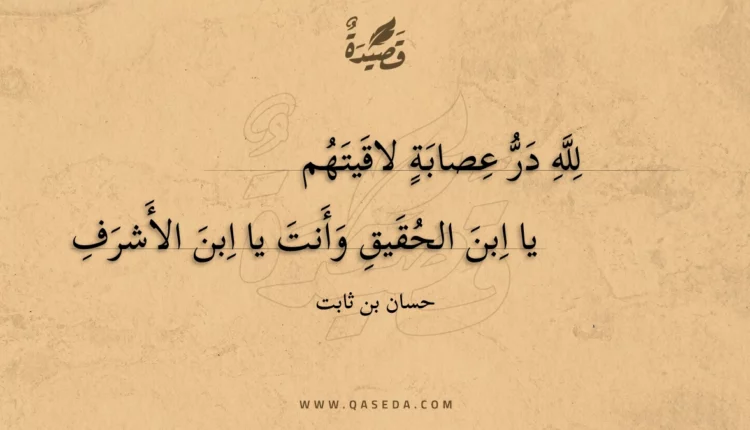 قَصِيدَةٌ
لِلَّهِ دَرُّ عِصابَةٍ لاقَيتَهُم
يا اِبنَ الحُقَيقِ وَأَنتَ يا اِبنَ الأَشرَفِ
حسان بن ثابت
WWW.QASEDA.COM